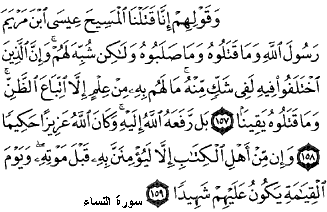 وَقَوْلِهِمْ إِنَّا قَتَلْنَا الْمَسِيحَ عِيسَى ابْنَ مَرْيَمَ
رَسُولَ اللَّهِ وَمَا قَتَلُوهُ وَمَا صَلَبُوهُ وَلَٰكِن شُبِّهَ لَهُمْ ۚ وَإِنَّ الَّذِينَ
اخْتَلَفُوا فِيهِ لَفِي شَكٍّ مِّنْهُ ۚ مَا لَهُم بِهِ مِنْ عِلْمٍ إِلَّا اتِّبَاعَ الظَّنِّ ۚ
وَمَا قَتَلُوهُ يَقِينًا ۝١٥٧ بَل رَّفَعَهُ اللَّهُ إِلَيْهِ ۚ وَكَانَ اللَّهُ عَزِيزًا حَكِيمًا
۝١٥٨ وَإِن مِّنْ أَهْلِ الْكِتَابِ إِلَّا لَيُؤْمِنَنَّ بِهِ قَبْلَ مَوْتِهِ ۖ وَيَوْمَ
الْقِيَامَةِ يَكُونُ عَلَيْهِمْ شَهِيدًا ۝١٥٩ سورة النساء